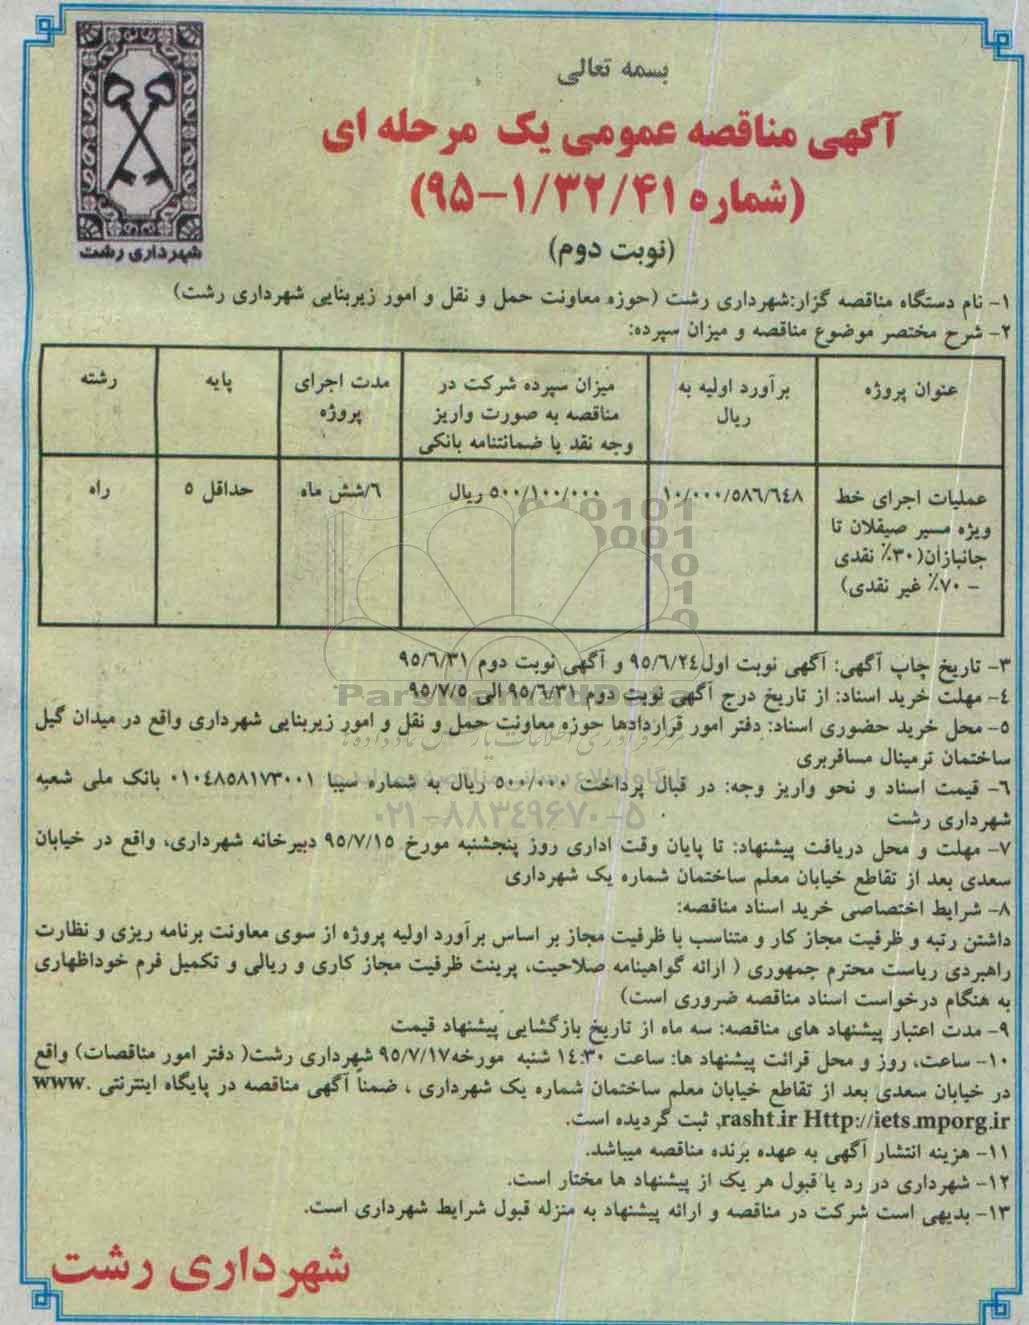 بسمه تعالی
آگهی مناقصه عمومی یک مرحله ای
(شماره ۹۵-۱/۳۲/۴۱)
(نوبت دوم)
شهرداری رشت
۱- نام دستگاه مناقصه گزار:شهرداری رشت (حوزه معاونت حمل و نقل و امور زیربنایی شهرداری رشت)
۲- شرح مختصر موضوع مناقصه و میزان سپرده:
عنوان پروژه
برآورد اولیه به
ریال
میزان سپرده شرکت در
مناقصه به صورت واریز
وجه نقد یا ضمانتنامه بانکی
مدت اجرای
پروژه
پایه
رشته
عملیات اجرای خط
ویژه مسیر صیقلان تا
جانبازان(۳۰٪ نقدی
- ۷۰٪ غیر نقدی)
۱۰/۰۰۰/۵۸۶/۶۴۸
۵۰۰/۱۰۰/۰۰۰ ریال
۶/شش ماه
حداقل ۵
راه
۳- تاریخ چاپ آگهی: آگهی نوبت اول۹۵/۶/۲۴ و آگهی نوبت دوم ۹۵/۶/۳۱
۴- مهلت خرید اسناد: از تاریخ درج آگهی نوبت دوم ۹۵/۶/۳۱ الی ۹۵/۷/۵
ParsNamadData
۵- محل خرید حضوری اسناد: دفتر امور قراردادها حوزه معاونت حمل و نقل و امور زیربنایی شهرداری واقع در میدان گیل
ساختمان ترمینال مسافربری
۶- قیمت اسناد و نحو واریز وجه: در قبال پرداخت ۵۰۰/۰۰۰ ریال به شماره سیبا ۰۱۰۴۸۵۸۱۷۳۰۰۱ بانک ملی شعبه
شهرداری رشت
۰۲۱-۸۸۳۴۹۶۷۰-۵
۷- مهلت و محل دریافت پیشنهاد: تا پایان وقت اداری روز پنجشنبه مورخ ۹۵/۷/۱۵ دبیرخانه شهرداری، واقع در خیابان
سعدی بعد از تقاطع خیابان معلم ساختمان شماره یک شهرداری
۸- شرایط اختصاصی خرید اسناد مناقصه:
داشتن رتبه و ظرفیت مجاز کار و متناسب با ظرفیت مجاز بر اساس برآورد اولیه پروژه از سوی معاونت برنامه ریزی و نظارت
راهبردی ریاست محترم جمهوری ( ارائه گواهینامه صلاحیت، پرینت ظرفیت مجاز کاری و ریالی و تکمیل فرم خوداظهاری
به هنگام درخواست اسناد مناقصه ضروری است)
۹- مدت اعتبار پیشنهاد های مناقصه: سه ماه از تاریخ بازگشایی پیشنهاد قیمت
۱۰- ساعت، روز و محل قرائت پیشنهاد ها: ساعت ۱۴:۳۰ شنبه مورخه۹۵/۷/۱۷ شهرداری رشت( دفتر امور مناقصات) واقع
در خیابان سعدی بعد از تقاطع خیابان معلم ساختمان شماره یک شهرداری ، ضمناً آگهی مناقصه در پایگاه اینترنتی www.
rasht.ir Http://iets.mporg.ir, ثبت گردیده است.
۱۱- هزینه انتشار آگهی به عهده برنده مناقصه میباشد.
۱۲- شهرداری در رد یا قبول هر یک از پیشنهاد ها مختار است.
۱۳- بدیهی است شرکت در مناقصه و ارائه پیشنهاد به منزله قبول شرایط شهرداری است.
شهرداری رشت